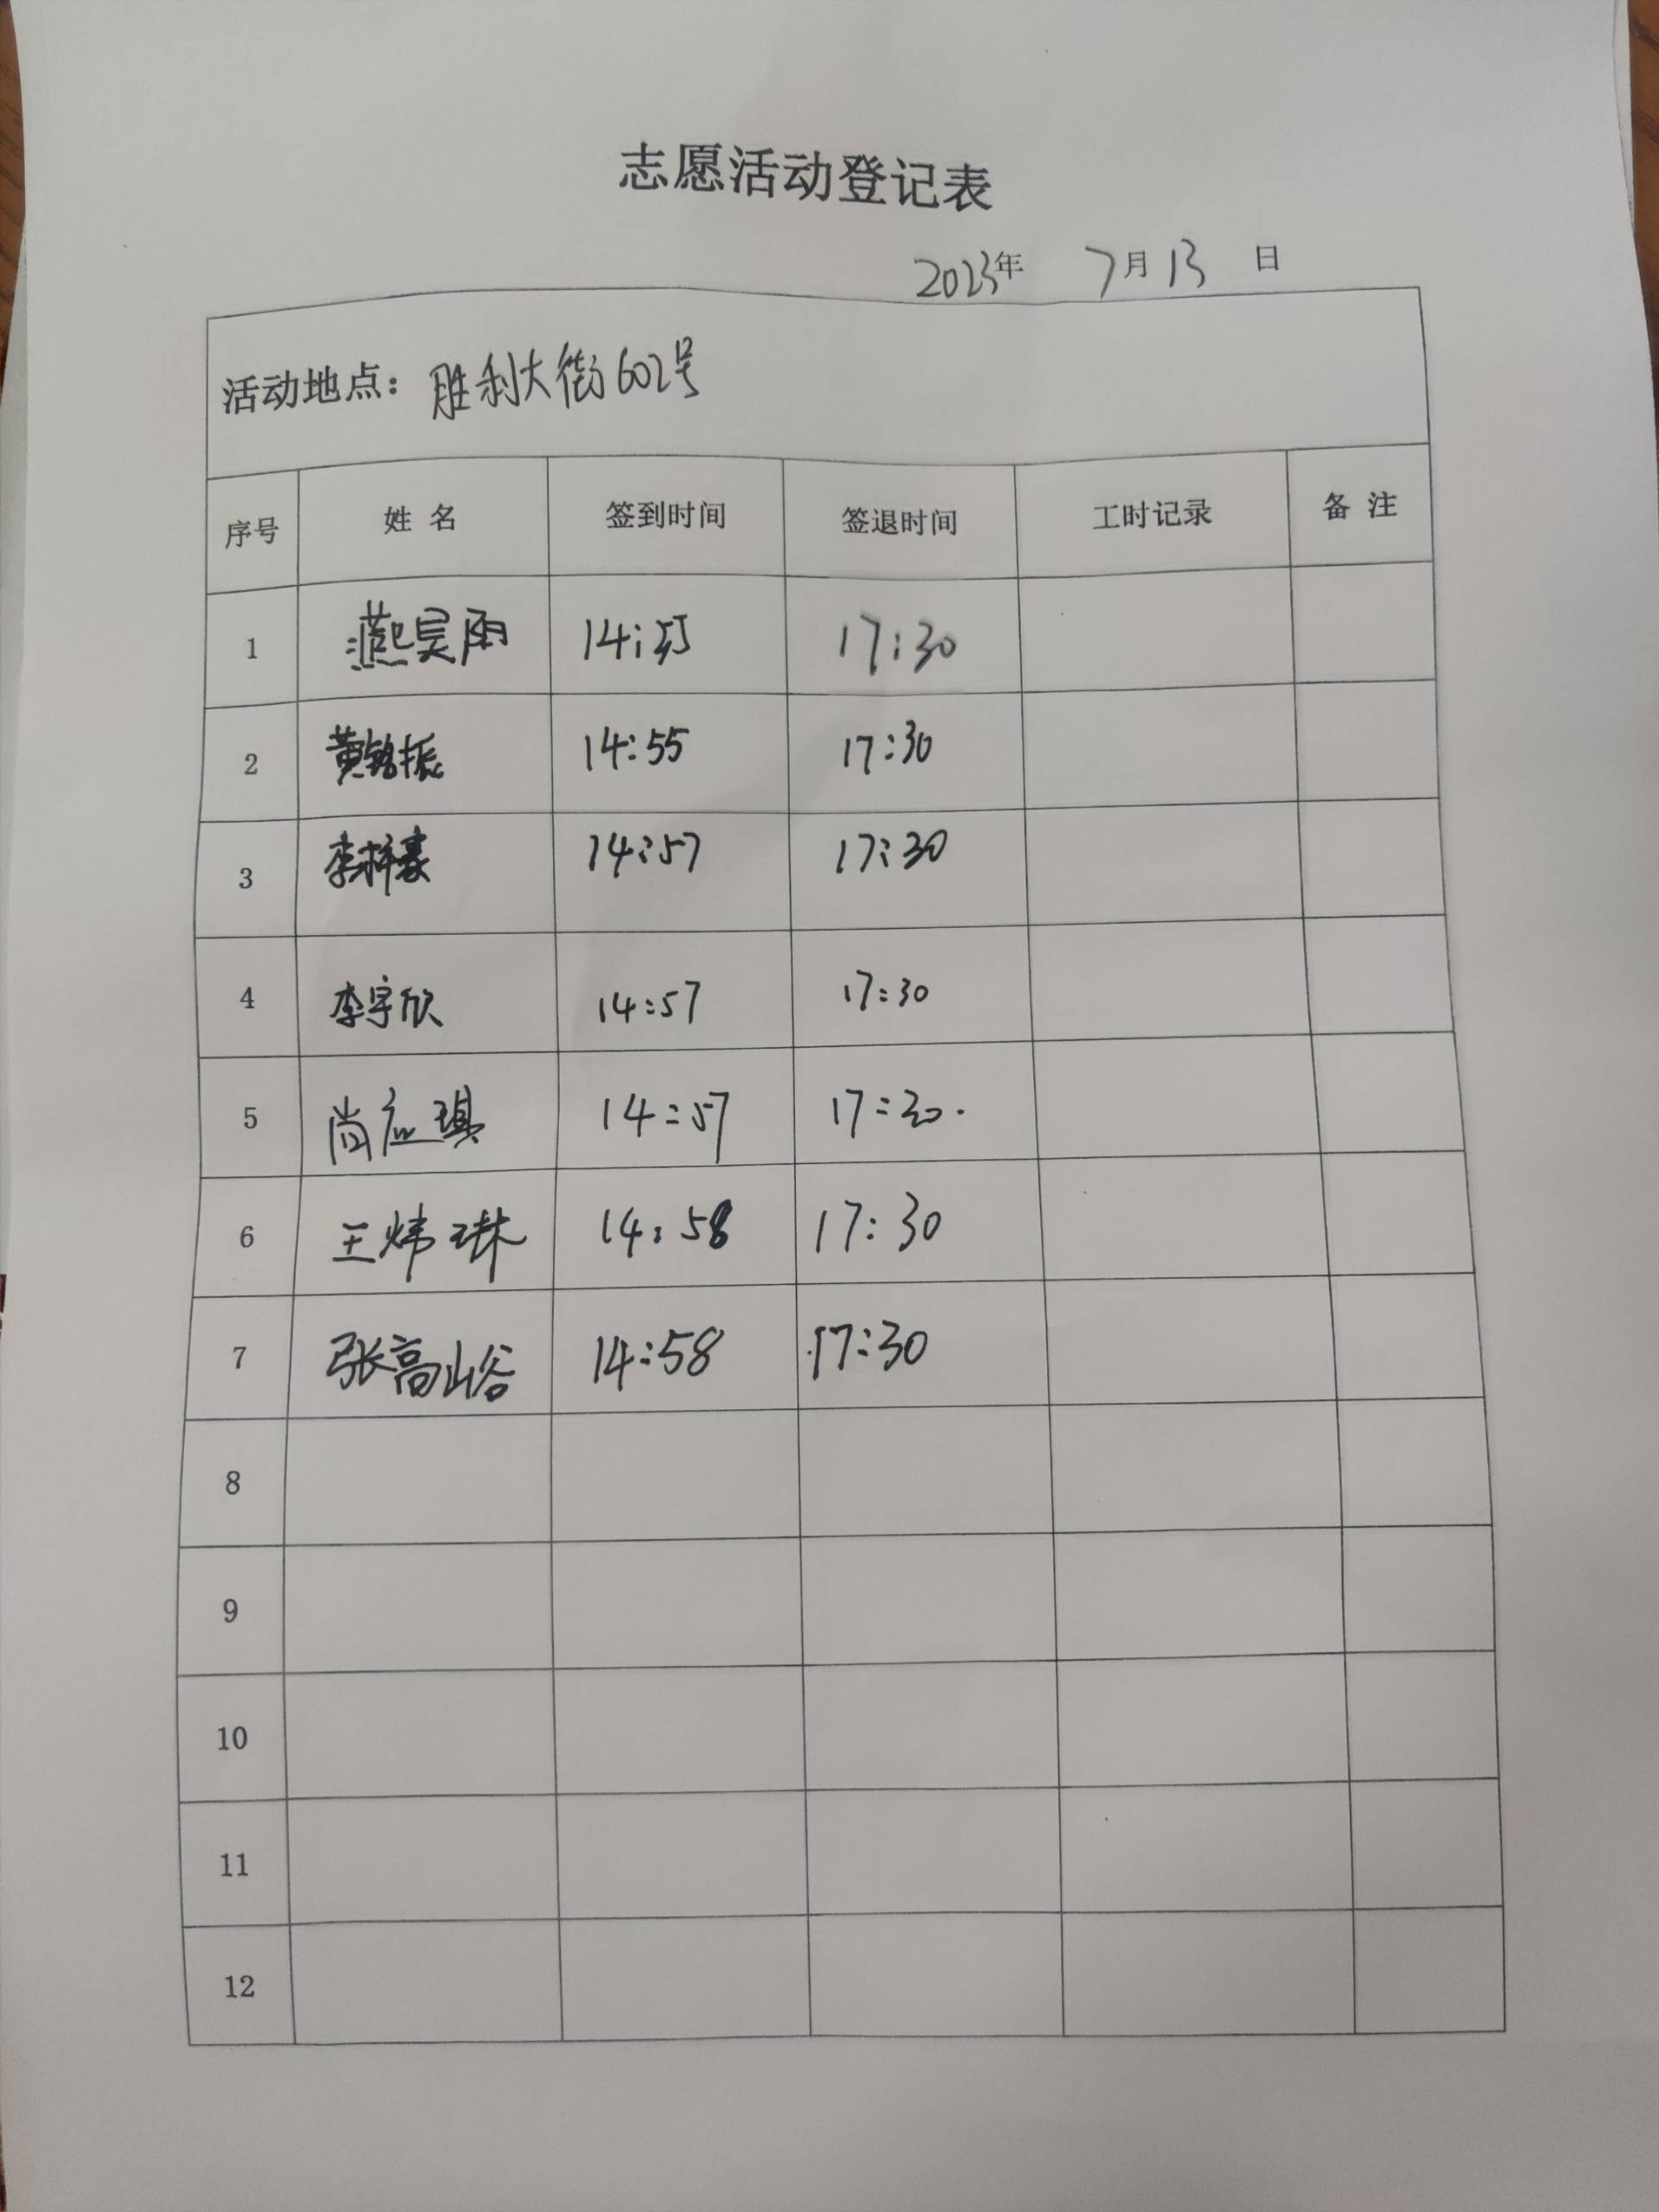 志愿活动登记表
2023年 7月13 日
活动地点：胜利大街602号
序号 姓名 签到时间 签退时间 工时记录 备注
1 昊雨 14:55 17:30
2 黄铭振 14:55 17:30
3 李梓豪 14:57 17:30
4 李宇欣 14:57 17:30
5 尚应琪 14:57 17:30.
6 王炜琳 14:58 17:30
7 张高山谷 14:58 17:30
8
9
10
11
12